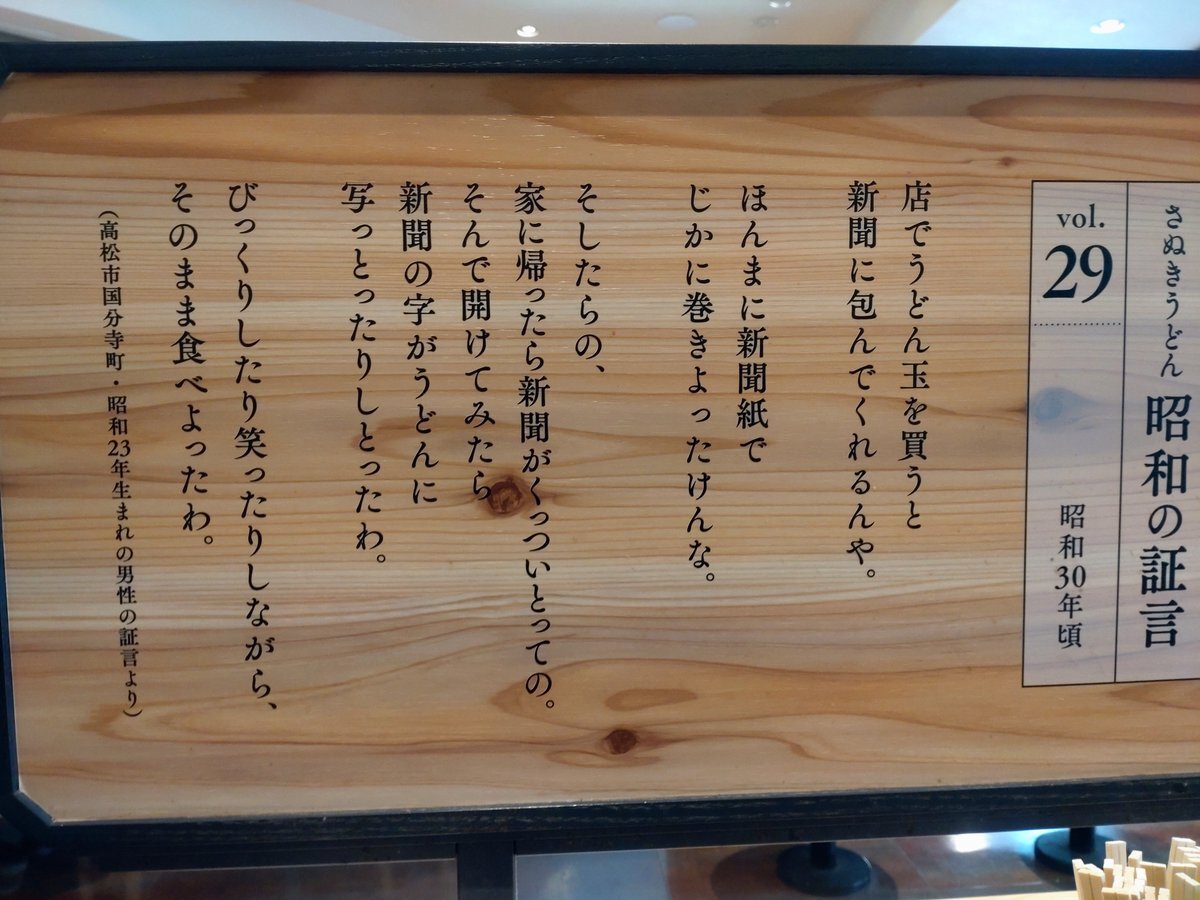 さぬきうどん 昭和の証言
vol.
29
昭和30年頃
店でうどん玉を買うと
新聞に包んでくれるんや。
ほんまに新聞紙で
じかに巻きよったけんな。
そしたらの、
家に帰ったら新聞がくっついとっての。
そんで開けてみたら
新聞の字がうどんに
写っとったりしとったわ。
びっくりしたり笑ったりしながら、
そのまま食べよったわ。
（高松市国分寺町・昭和23年生まれの男性の証言より）